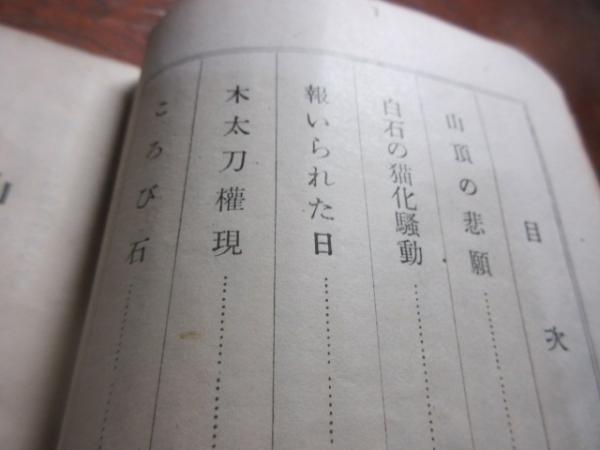 目次
山頂の悲願
白石の猫化騒動
報いられた日
木太刀權現
ころび石